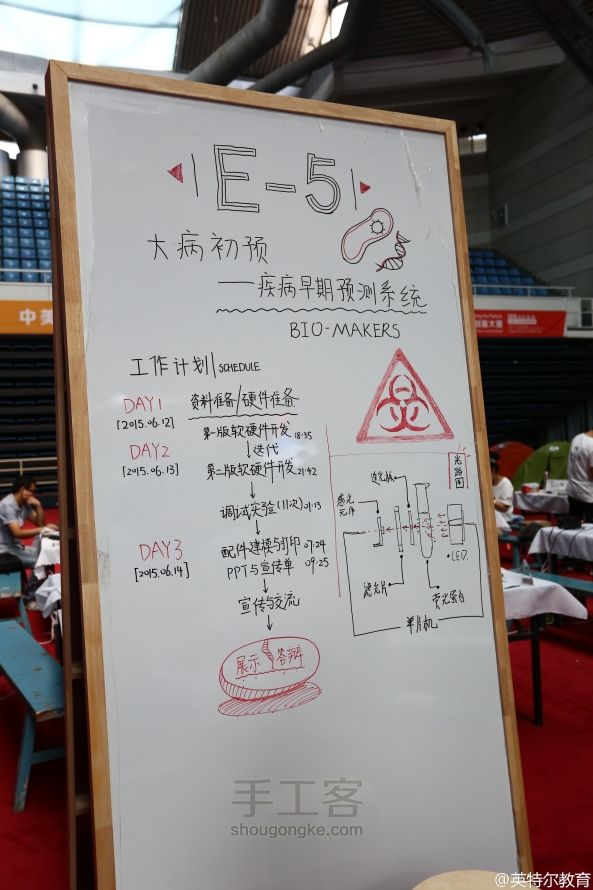 E-5
大病初预
——疾病早期预测系统
BIO-MAKERS
工作计划|SCHEDULE
DAY1 资料准备/硬件准备
[2015.06.12] 第一版软硬件开发 18:35
DAY2 迭代
[2015.06.13] 第二版软硬件开发 21:42
调试实验(11次) 01:13
DAY3 配件建模与打印 07:24
[2015.06.14] PPT与宣传单 09:25
宣传与交流
展示 答辩
光路图
感光元件
滤光片
LED
荧光蛋白
单片机
中美
创客大赛
手工客
shougongke.com
@英特尔教育